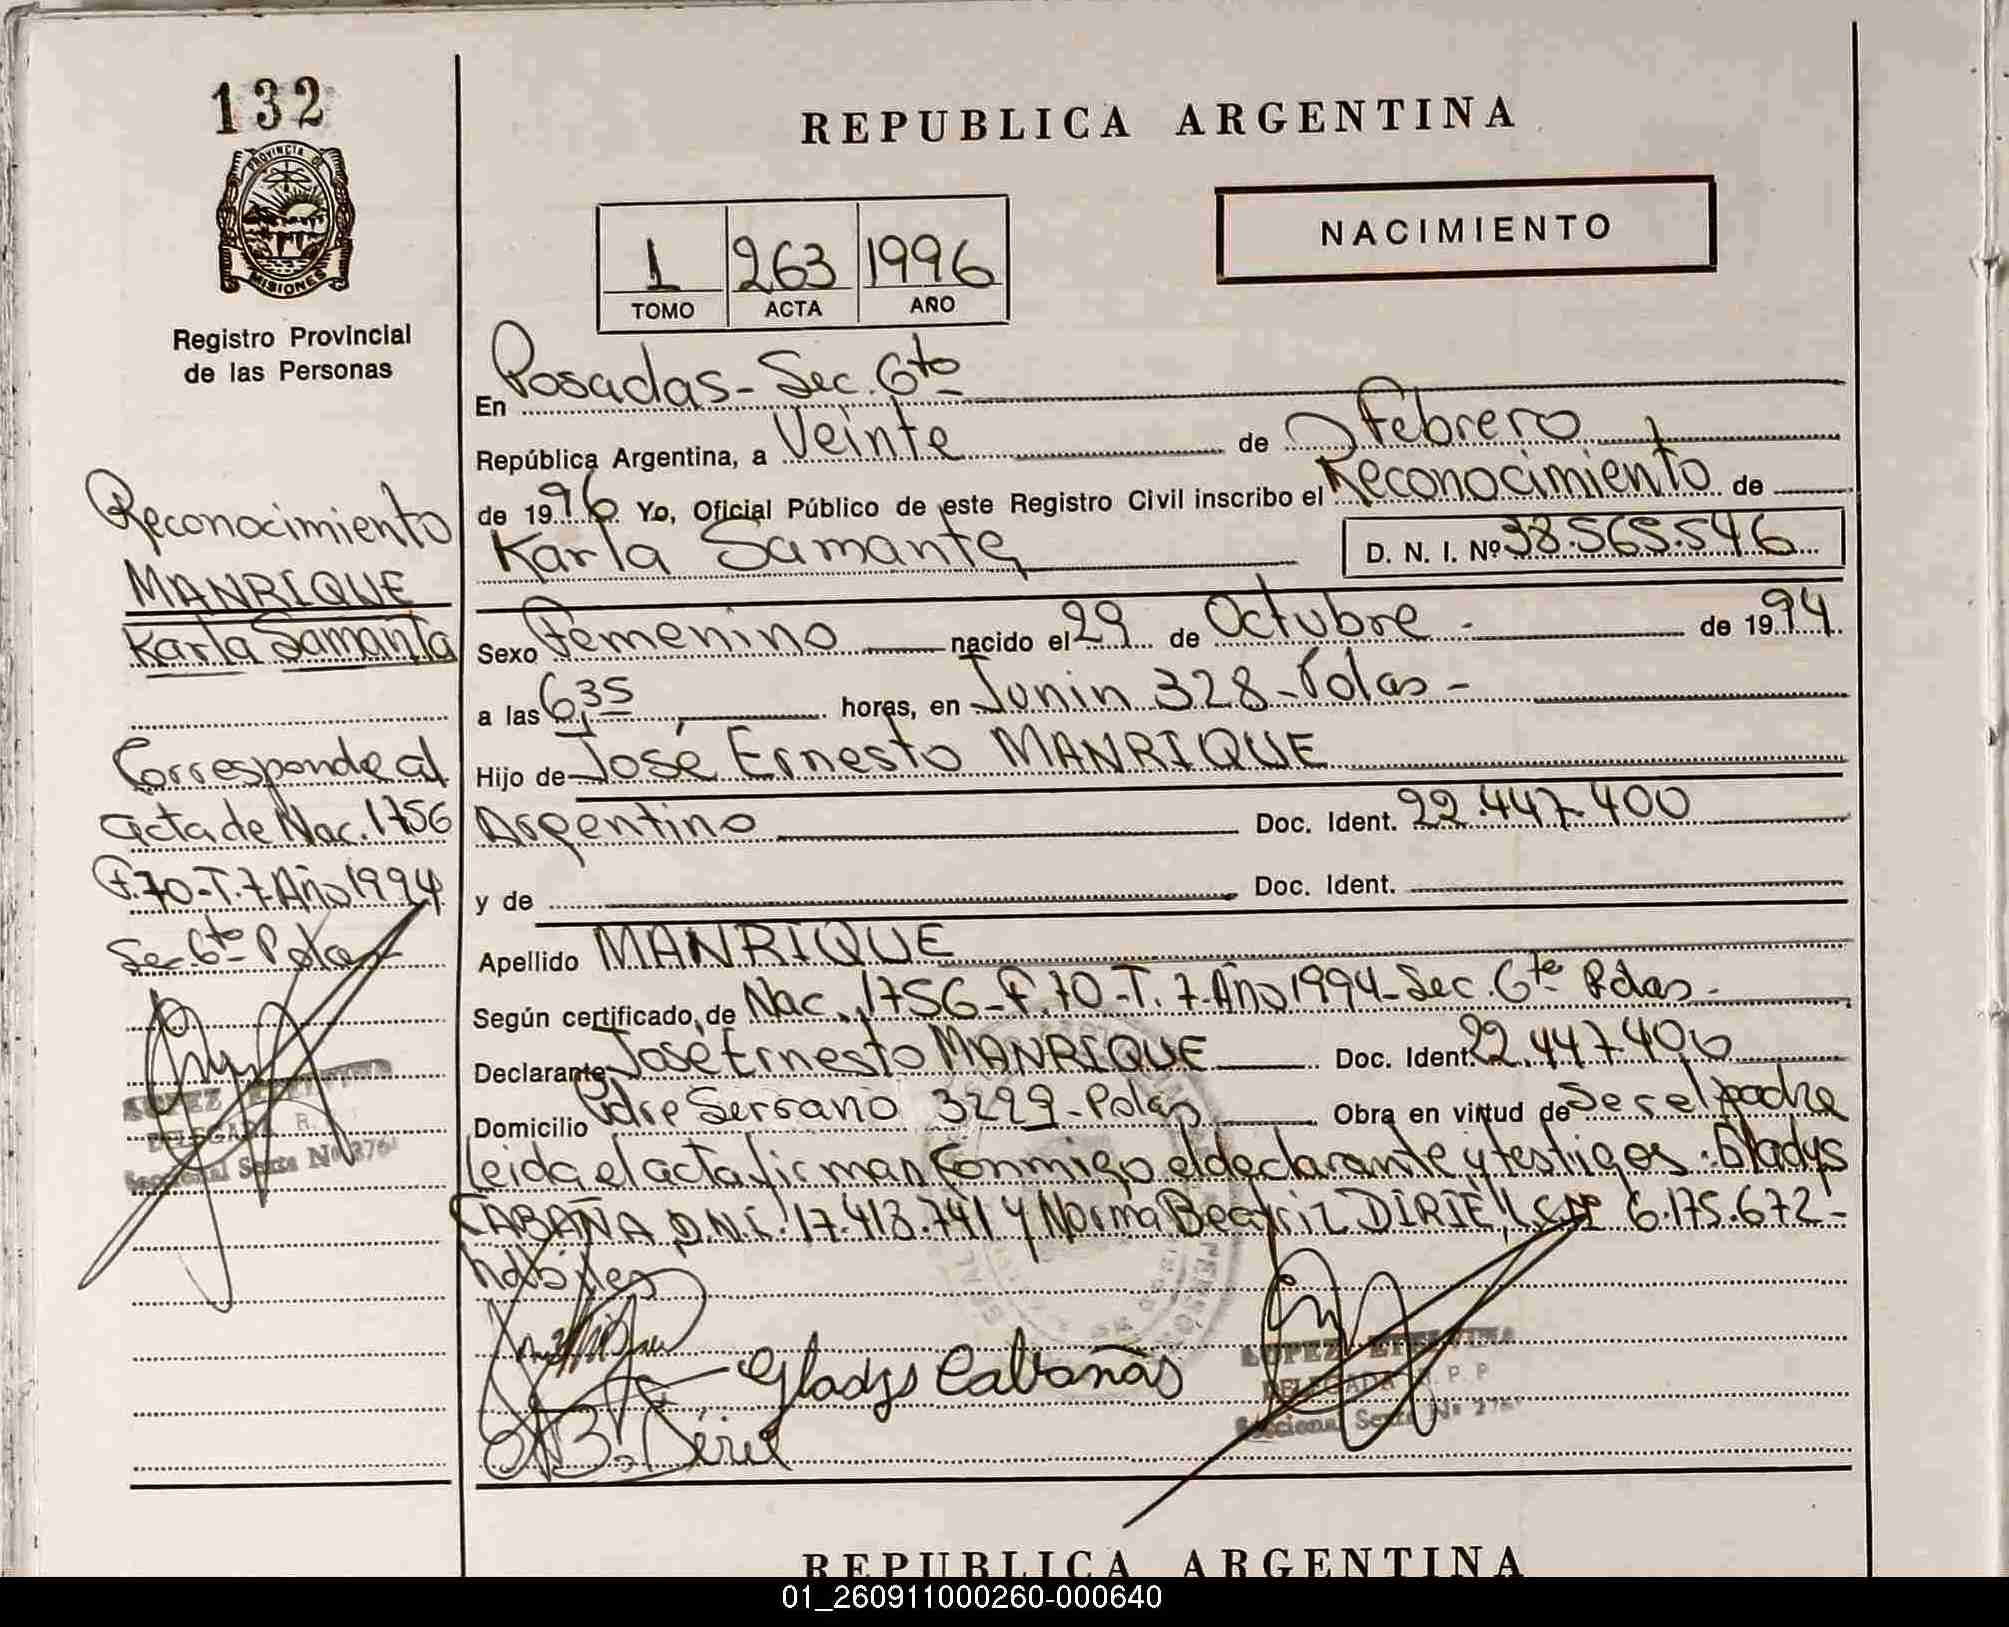 132
PROVINCIA DE
MISIONES
Registro Provincial
de las Personas
Reconocimiento
MANRIQUE
Karla Samanta
Corresponde al
acta de Nac. 1756
F. 70-T. 7 Año 1994
Sec 6ta Pdas
LOPEZ
DELEGADA R.
Seccional Sexta Nº
REPUBLICA ARGENTINA
NACIMIENTO
1 263 1996
TOMO ACTA AÑO
En Posadas - Sec. 6to
República Argentina, a Veinte de Febrero
de 1996 Yo, Oficial Público de este Registro Civil inscribo el Reconocimiento de
Karla Samanta D. N. I. Nº 38.565.546
Sexo Femenino nacido el 29 de Octubre - de 1994
a las 6,35 horas, en Junin 328 - Pdas -
Hijo de José Ernesto MANRIQUE
Argentino Doc. Ident. 22.447.400
y de Doc. Ident.
Apellido MANRIQUE
Según certificado de Nac. 1756 - F. 70 - T. 7 - Año 1994 - Sec. 6ta Pdas -
Declarante José Ernesto MANRIQUE Doc. Ident. 22.447.400
Domicilio Padre Serrano 3229 - Pdas Obra en virtud de Ser el padre
leida el acta firman conmigo el declarante y testigos: Gladys
CABAÑA D.N.I. 17.413.741 y Norma Beatriz DIRIE L.C Nº 6.175.672 -
habiles
Gladys Cabañas
LOPEZ
DELEGADA R. P. P
Seccional Sexta Nº
REPUBLICA ARGENTINA
01_260911000260-000640